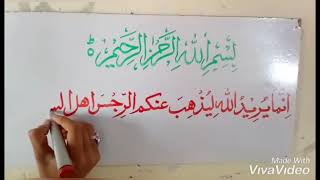 بِسْمِ اللهِ الرَّحْمٰنِ الرَّحِيْمِ
اِنَّمَا يُرِيْدُ اللهُ لِيُذْهِبَ عَنْكُمُ الرِّجْسَ اَهْلَ
Made With
VivaVideo